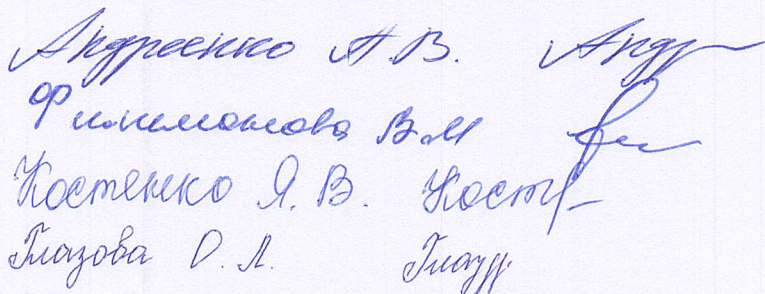 Андреенко А.В. Андр
Филимонова В М
Костенко Я. В. Кост
Глазова О. Л.